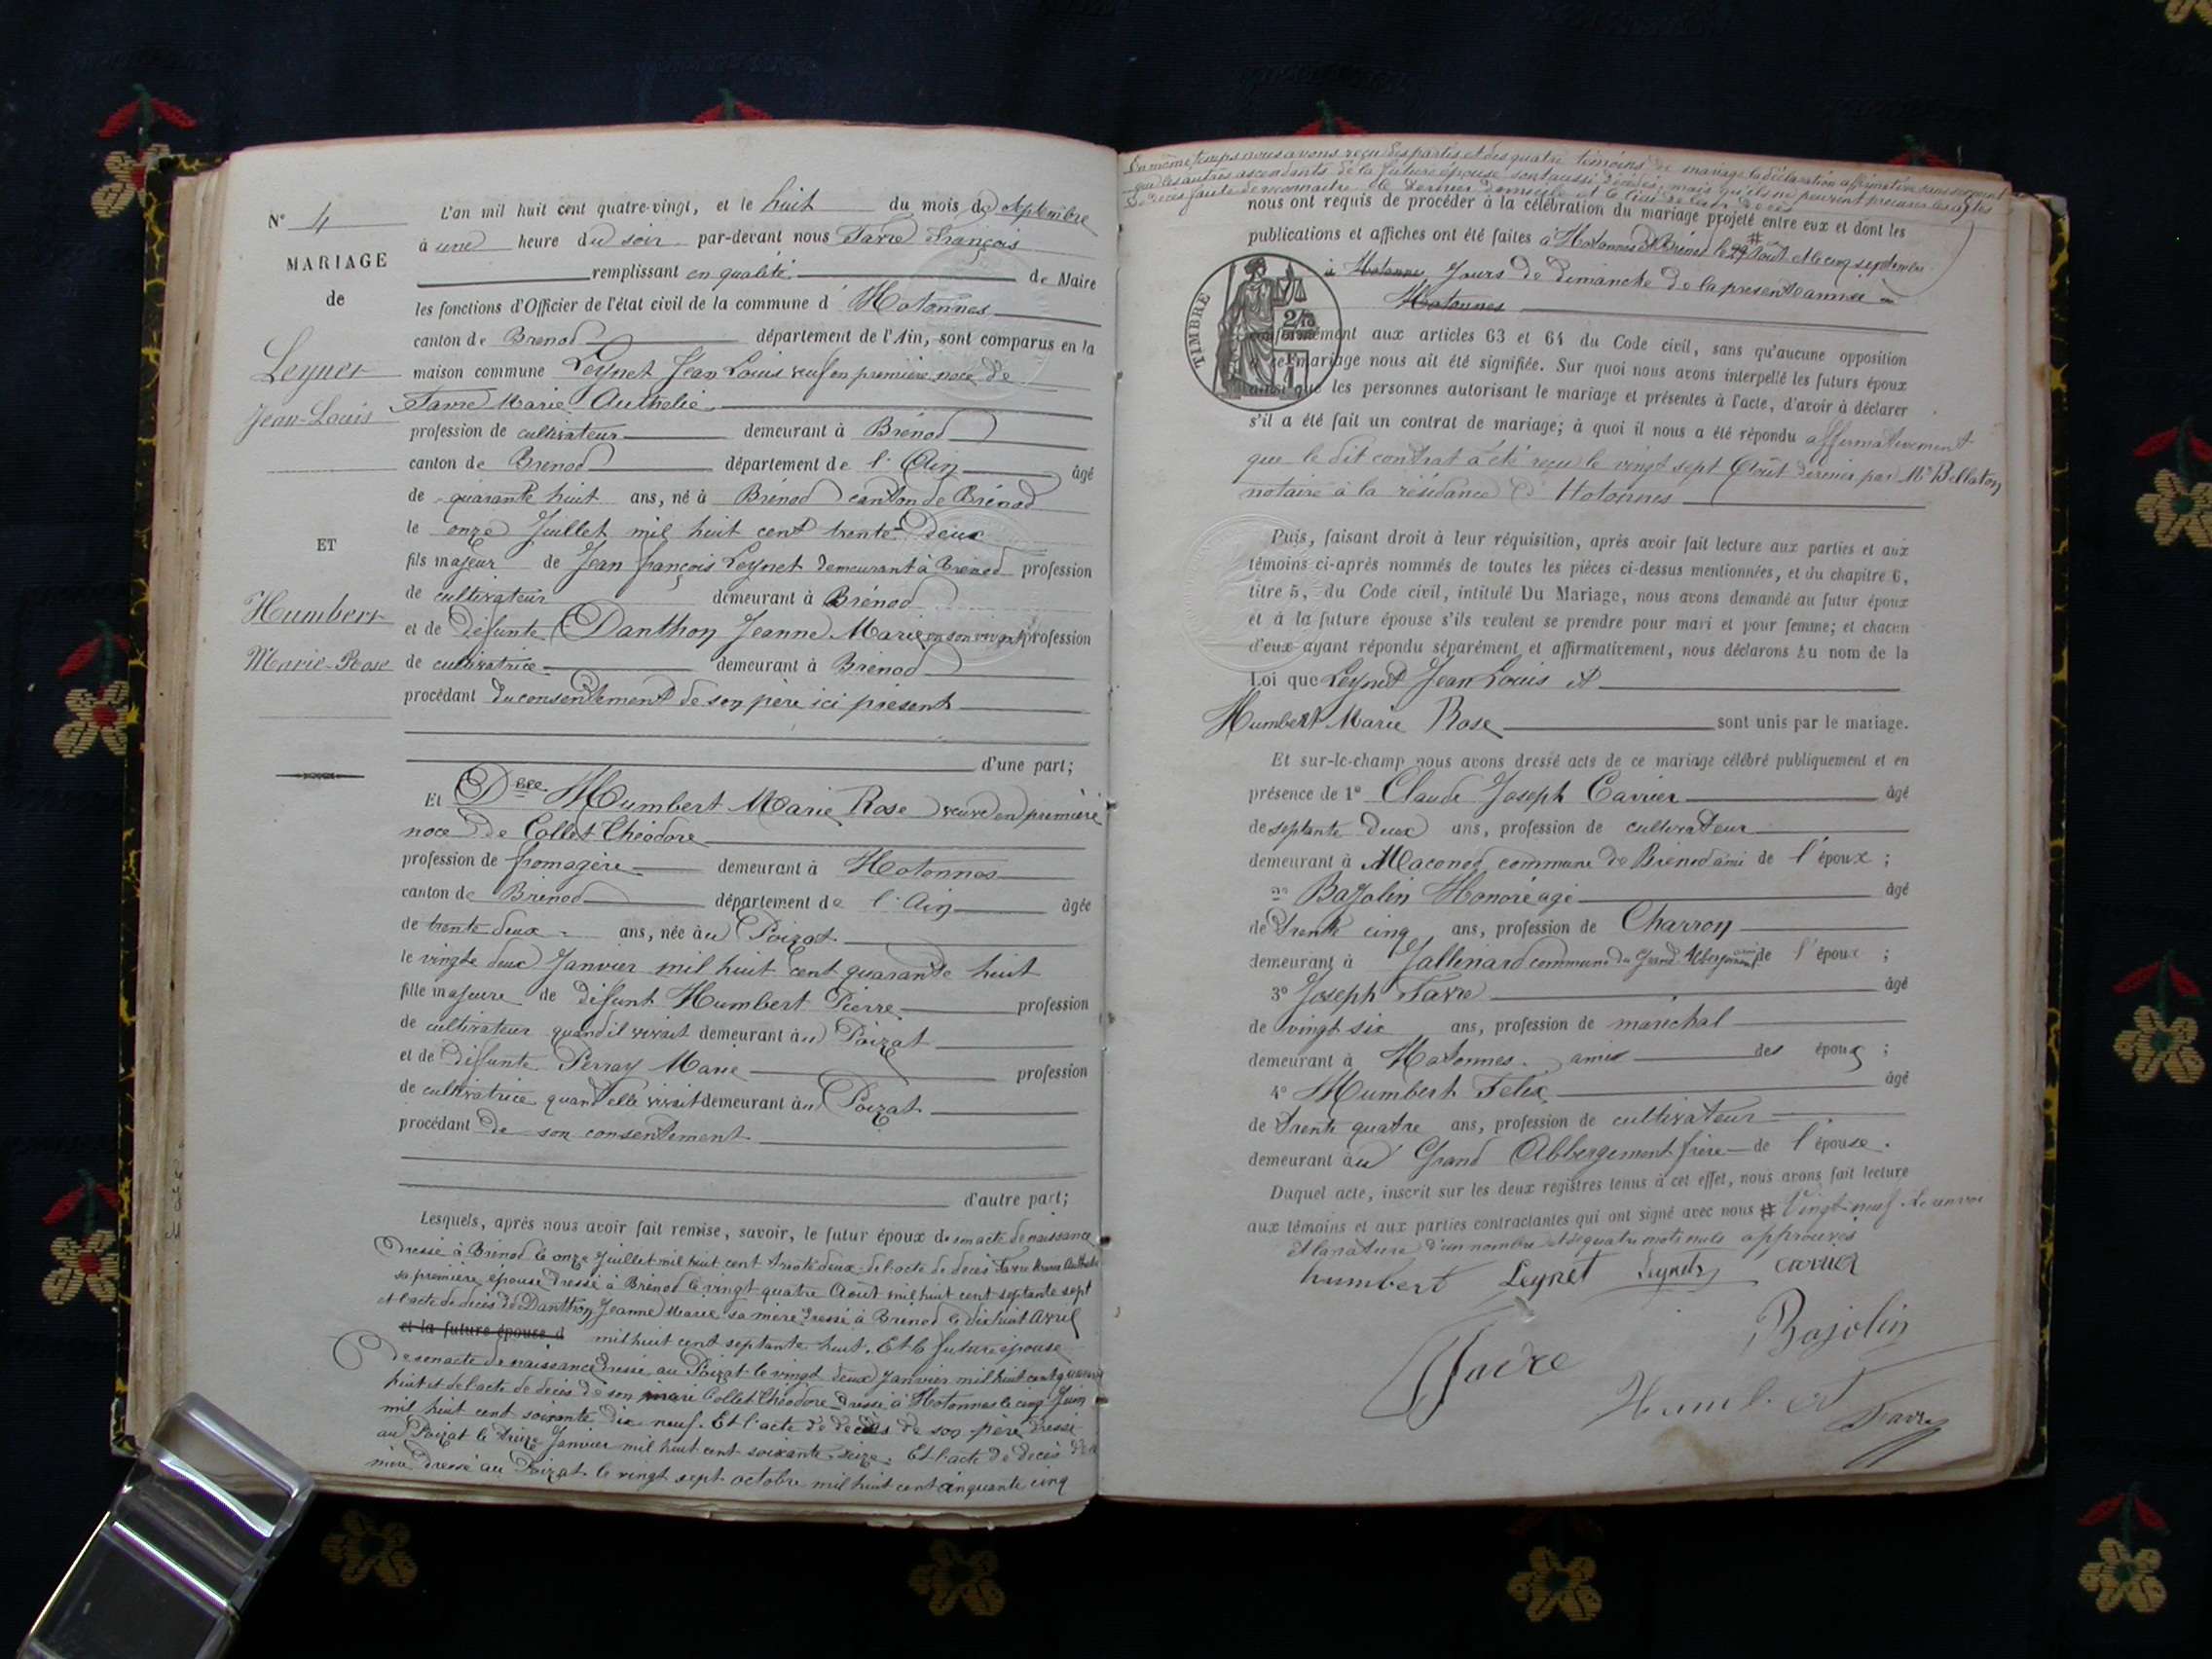 N° 4
MARIAGE
de
Leynet
Jean-Louis
ET
Humbert
Marie-Rose
L'an mil huit cent quatre-vingt, et le huit du mois de septembre
à une heure du soir par-devant nous Favre François
remplissant en qualité de Maire
les fonctions d'Officier de l'état civil de la commune d' Hotonnes
canton de Brenod département de l'Ain, sont comparus en la
maison commune Leynet Jean Louis veuf en première noce de
Favre Marie Authelie
profession de cultivateur demeurant à Brénod
canton de Brenod département de l'Ain âgé
de quarante huit ans, né à Brénod canton de Brénod
le onze Juillet mil huit cent trente deux
fils majeur de Jean françois Leynet demeurant à Brenod profession
de cultivateur demeurant à Brénod
et de défunte Danthon Jeanne Marie en son vivant profession
de cultivatrice demeurant à Brénod
procédant du consentement de son père ici présent
d'une part;
Et Dlle Humbert Marie Rose veuve en première
noce de Collet Théodore
profession de fromagère demeurant à Hotonnes
canton de Brénod département de l'Ain âgée
de trente deux ans, née au Poizat
le vingte deux Janvier mil huit cent quarante huit
fille majeure de défunt Humbert Pierre profession
de cultivateur quand il vivait demeurant au Poizat
et de défunte Perray Marie profession
de cultivatrice quand elle vivait demeurant au Poizat
procédant de son consentement
d'autre part;
Lesquels, après nous avoir fait remise, savoir, le futur époux de son acte de naissance
Dressé à Brénod le onze Juillet mil huit cent trente deux de l'acte de décès Favre Marie Authelie
sa première épouse Dressé à Brénod le vingt quatre Août mil huit cent septante sept
et l'acte de décès de Danthon Jeanne Marie sa mère Dressé à Brénod le dix huit Avril
et la future épouse d mil huit cent septante huit. Et la future épouse
De son acte de naissance Dressé au Poizat le vingt deux Janvier mil huit cent quarante
huit et de l'acte de décès de son mari Collet Théodore Dressé à Hotonnes le cinq Juin
mil huit cent soixante dix neuf. Et l'acte de décès de son père Dressé
au Poizat le treize Janvier mil huit cent soixante seize. Et l'acte de décès de sa
mère Dressé au Poizat le vingt sept octobre mil huit cent cinquante cinq
En même temps nous avons reçu des parties et des quatre témoins de mariage la déclaration affirmative sans serment
que les autres ascendants de la future épouse sont aussi décédés, mais qu'ils ne peuvent procurer les actes
De décès faute de connaître le Dernier domicile et le lieu de leur décès
nous ont requis de procéder à la célébration du mariage projeté entre eux et dont les
publications et affiches ont été faites à Hotonnes et Brénod le # Août et le cinq septembre
à Hotonnes Jours de dimanche de la présente année
Hotonnes
TIMBRE
conformément aux articles 63 et 64 du Code civil, sans qu'aucune opposition
à ce mariage nous ait été signifiée. Sur quoi nous avons interpellé les futurs époux
ainsi que les personnes autorisant le mariage et présentes à l'acte, d'avoir à déclarer
s'il a été fait un contrat de mariage; à quoi il nous a été répondu affirmativement
que le dit contrat a été reçu le vingt sept Août dernier par Me Bellaton
notaire à la résidence d'Hotonnes
Puis, faisant droit à leur réquisition, après avoir fait lecture aux parties et aux
témoins ci-après nommés de toutes les pièces ci-dessus mentionnées, et du chapitre 6,
titre 5, du Code civil, intitulé Du Mariage, nous avons demandé au futur époux
et à la future épouse s'ils veulent se prendre pour mari et pour femme; et chacun
d'eux ayant répondu séparément et affirmativement, nous déclarons Au nom de la
Loi que Leynet Jean Louis et
Humbert Marie Rose sont unis par le mariage.
Et sur-le-champ nous avons dressé acte de ce mariage célébré publiquement et en
présence de 1° Claude Joseph Carrier âgé
de septante deux ans, profession de cultivateur
demeurant à Maconod commune de Brénod ami de l'époux ;
2° Bazolin Honoré agé âgé
de trente cinq ans, profession de Charron
demeurant à Jallinard commune du Grand Abergement de l'époux ;
3° Joseph Favre âgé
de vingt six ans, profession de maréchal
demeurant à Hotonnes amis des époux ;
4° Humbert Felix âgé
de trente quatre ans, profession de cultivateur
demeurant au Grand Abbergement frère de l'épouse.
Duquel acte, inscrit sur les deux registres tenus à cet effet, nous avons fait lecture
aux témoins et aux parties contractantes qui ont signé avec nous # Vingt-neuf le renvoi
et la rature d'un nombre et de quatre mots nuls approuvés
humbert Leynet Leynet carrier
Bajolin
Favre
Humbert
Favre